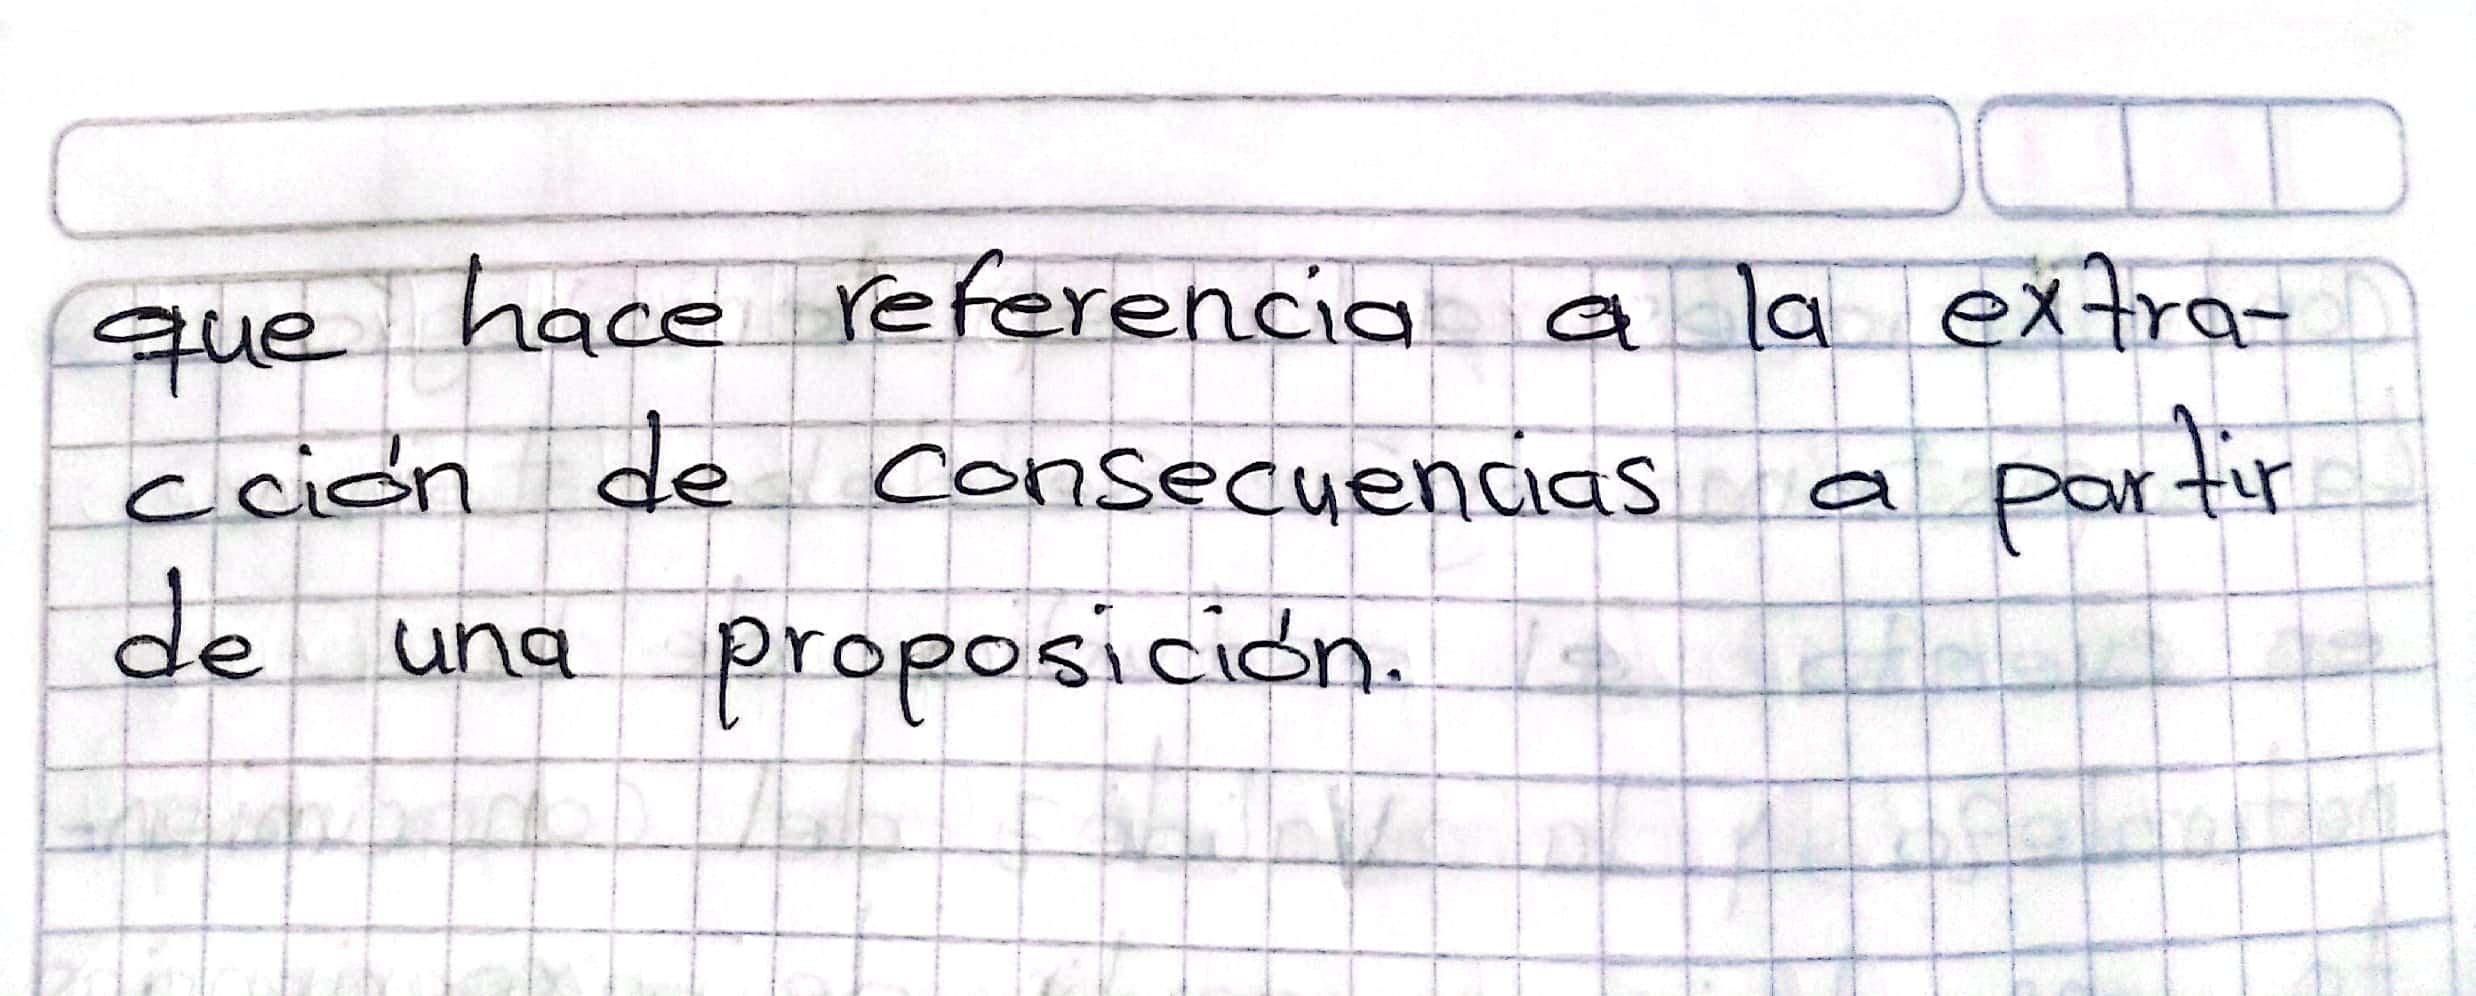 que hace referencia a la extra-
cción de consecuencias a partir
de una proposición.